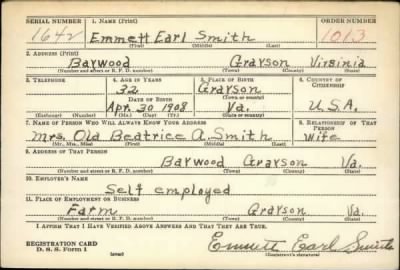 SERIAL NUMBER 1. NAME (Print) ORDER NUMBER
1642 Emmett Earl Smith 1013
(First) (Middle) (Last)
2. ADDRESS (Print)
Baywood Grayson Virginia
(Number and street or R. F. D. number) (Town) (County) (State)
3. TELEPHONE 4. AGE IN YEARS 5. PLACE OF BIRTH 6. COUNTRY OF CITIZENSHIP
32 Grayson
DATE OF BIRTH (Town or county)
Apr. 30 1908 Va. U.S.A.
(Exchange) (Number) (Mo.) (Day) (Yr.) (State or country)
7. NAME OF PERSON WHO WILL ALWAYS KNOW YOUR ADDRESS 8. RELATIONSHIP OF THAT PERSON
Mrs. Ola Beatrice A. Smith Wife
(Mr., Mrs., Miss) (First) (Middle) (Last)
9. ADDRESS OF THAT PERSON
Baywood Grayson Va.
(Number and street or R. F. D. number) (Town) (County) (State)
10. EMPLOYER'S NAME
Self employed
11. PLACE OF EMPLOYMENT OR BUSINESS
Farm Grayson Va.
(Number and street or R. F. D. number) (Town) (County) (State)
I AFFIRM THAT I HAVE VERIFIED ABOVE ANSWERS AND THAT THEY ARE TRUE.
REGISTRATION CARD
D. S. S. Form 1 (over) Emmett Earl Smith
(Registrant's signature)